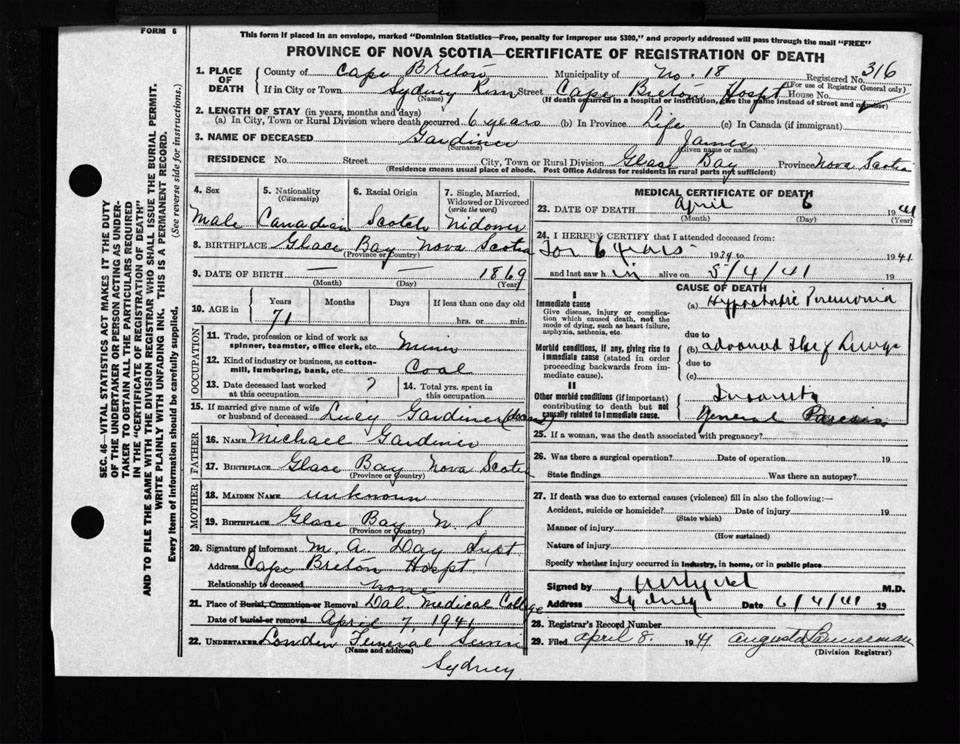 FORM 6
This form if placed in an envelope, marked "Dominion Statistics—Free, penalty for improper use $300," and properly addressed will pass through the mail "FREE"
PROVINCE OF NOVA SCOTIA—CERTIFICATE OF REGISTRATION OF DEATH
SEC. 46—VITAL STATISTICS ACT MAKES IT THE DUTY
OF THE UNDERTAKER OR PERSON ACTING AS UNDER-
TAKER TO OBTAIN ALL THE PARTICULARS REQUIRED
IN THE "CERTIFICATE OF REGISTRATION OF DEATH"
AND TO FILE THE SAME WITH THE DIVISION REGISTRAR WHO SHALL ISSUE THE BURIAL PERMIT.
WRITE PLAINLY WITH UNFADING INK. THIS IS A PERMANENT RECORD.
Every item of information should be carefully supplied. (See reverse side for instructions.)
1. PLACE OF DEATH
County of Cape Breton Municipality of No. 18 Registered No. 316
(For use of Registrar General only)
If in City or Town Sydney River Street Cape Breton Hospt House No.
(Name) (If death occurred in a hospital or institution, give the name instead of street and number)
2. LENGTH OF STAY (in years, months and days)
(a) In City, Town or Rural Division where death occurred 6 years (b) In Province Life (c) In Canada (if immigrant)
3. NAME OF DECEASED Gardiner James
(Surname) (Given name or names)
RESIDENCE No. Street City, Town or Rural Division Glace Bay Province Nova Scotia
(Residence means usual place of abode. Post Office Address for residents in rural parts not sufficient)
4. Sex Male
5. Nationality (Citizenship) Canadian
6. Racial Origin Scotch
7. Single, Married, Widowed or Divorced (write the word) Widower
8. BIRTHPLACE Glace Bay Nova Scotia
(Province or Country)
9. DATE OF BIRTH — — 1869
(Month) (Day) (Year)
10. AGE in Years Months Days If less than one day
71 hrs. or min.
OCCUPATION
11. Trade, profession or kind of work as spinner, teamster, office clerk, etc. Miner
12. Kind of industry or business, as cotton-mill, lumbering, bank, etc. Coal
13. Date deceased last worked at this occupation ?
14. Total yrs. spent in this occupation
15. If married give name of wife or husband of deceased Lucy Gardiner
FATHER
16. NAME Michael Gardiner
17. BIRTHPLACE Glace Bay Nova Scotia
(Province or Country)
MOTHER
18. MAIDEN NAME unknown
19. BIRTHPLACE Glace Bay N S
(Province or Country)
20. Signature of informant M. A. Day Supt
Address Cape Breton Hospt.
Relationship to deceased none
21. Place of Burial, Cremation or Removal Dal. Medical College
Date of burial or removal April 7, 1941
22. UNDERTAKER London Funeral
(Name and address)
Sydney
MEDICAL CERTIFICATE OF DEATH
23. DATE OF DEATH April 6 1941
(Month) (Day) (Year)
24. I HEREBY CERTIFY that I attended deceased from:
For 6 years 1934 to 1941
and last saw him alive on 5/4/41
CAUSE OF DEATH
I
Immediate cause
Give disease, injury or complication which caused death, not the mode of dying, such as heart failure, asphyxia, asthenia, etc.
(a) Hypostatic Pneumonia
due to
Morbid conditions, if any, giving rise to immediate cause (stated in order proceeding backwards from immediate cause).
(b)
due to
(c)
II
Other morbid conditions (if important) contributing to death but not causally related to immediate cause.
Insanity
General Paresis
25. If a woman, was the death associated with pregnancy?
26. Was there a surgical operation? Date of operation 19
State findings Was there an autopsy?
27. If death was due to external causes (violence) fill in also the following:—
Accident, suicide or homicide? Date of injury 19
(State which)
Manner of injury
(How sustained)
Nature of injury
Specify whether injury occurred in industry, in home, or in public place
Signed by M.D.
Address Sydney Date 6/4/41 19
28. Registrar's Record Number
29. Filed April 8. 1941
(Division Registrar)